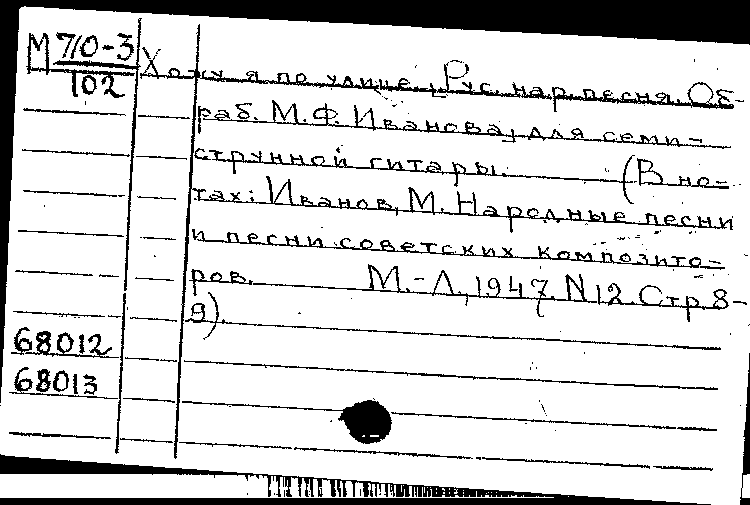 М 710-3 Хожу я по улице. [Рус. нар. песня. Об-
102
раб. М.Ф. Иванова] для семи-
струнной гитары. (В но-
тах: Иванов, М. Народные песни
и песни советских композито-
ров. М.-Л., 1947. N 12. Стр. 8-
9).
68012
68013